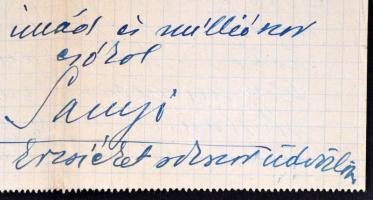 imád és milliószor
csókol
Samyi
Erzsiéket sokszor üdvözlöm